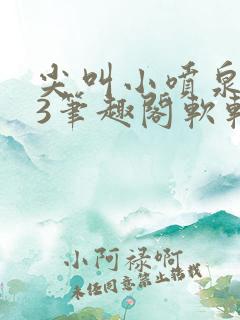 尖叫小喷泉
3笔趣阁软
小阿禄啊
未经同意禁止转载